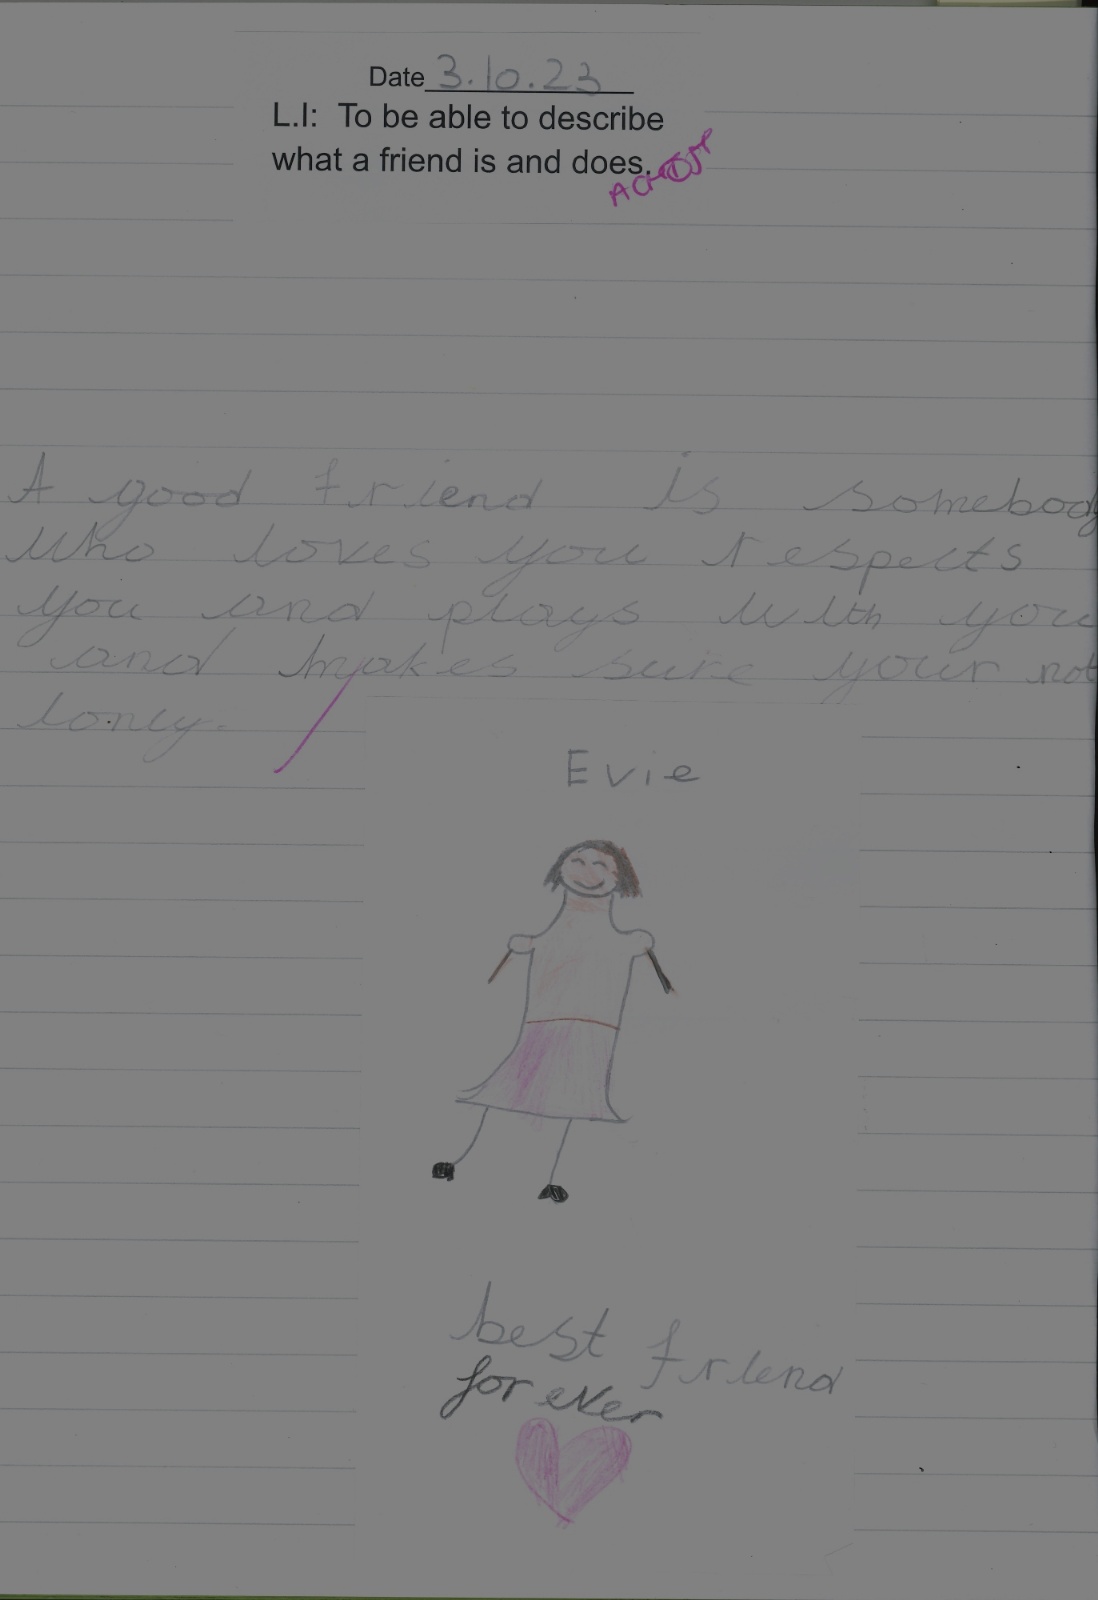 Date 3.10.23
L.I: To be able to describe
what a friend is and does.
A good friend is somebody
who loves you respects
you and plays with you
and makes sure your not
lonly.
Evie
best friend
for ever